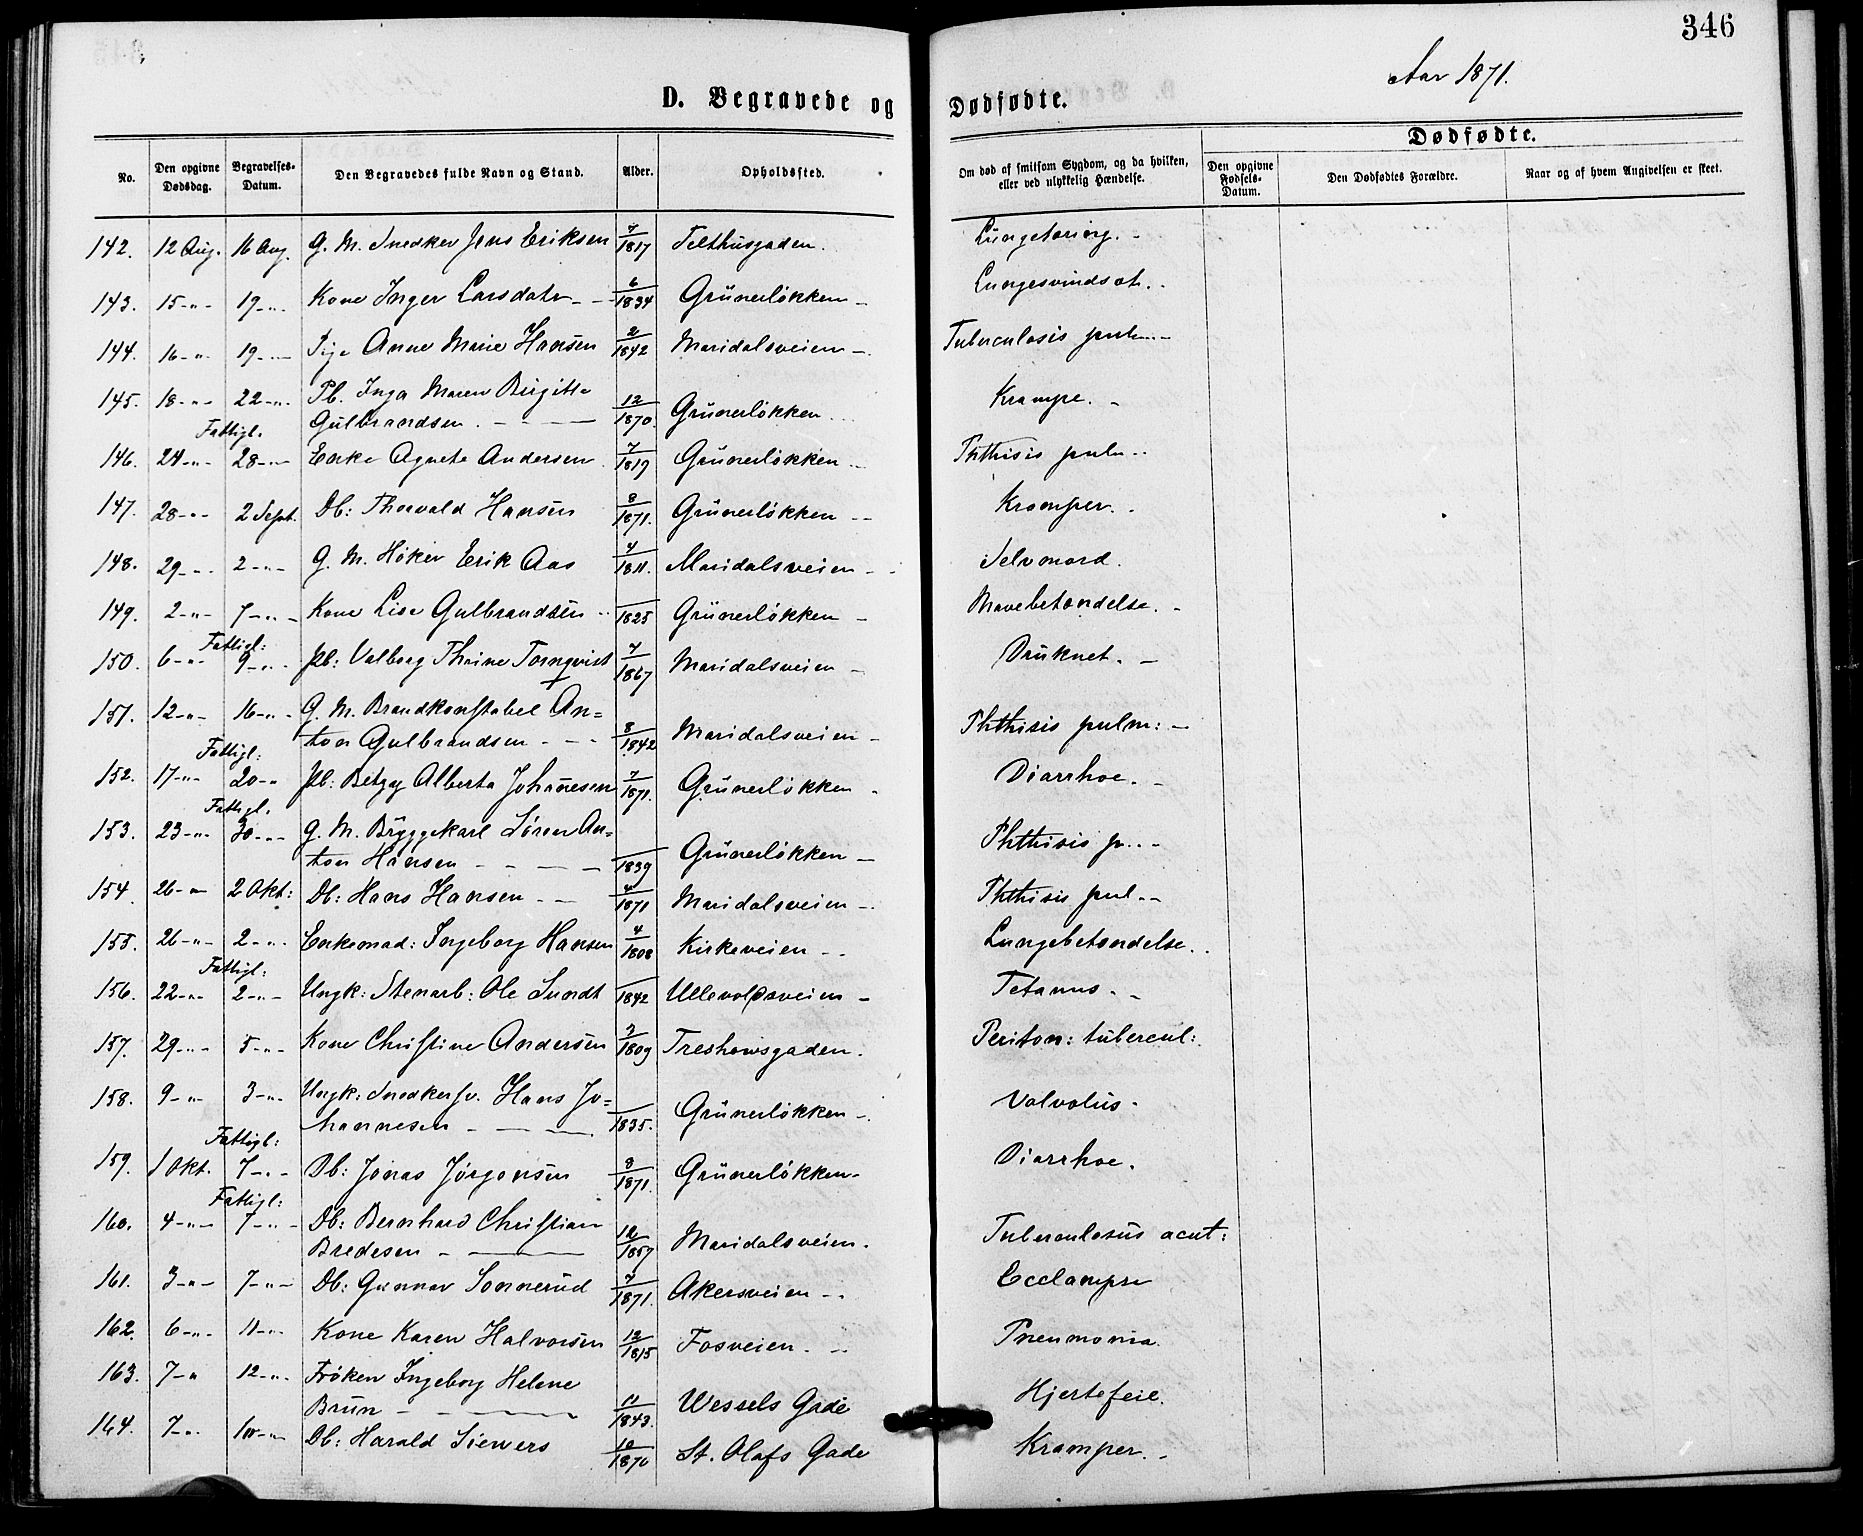 346
Aar 1871.
D. Begravede og Dødfødte.
Dødfødte.
No. Den opgivne Dødsdag. Begravelses-Datum. Den Begravedes fulde Navn og Stand. Alder. Opholdssted. Om død af smitsom Sygdom, og da hvilken, eller ved ulykkelig Hændelse. Den opgivne Fødsels-Datum. Den Dødfødtes Forældre. Naar og af hvem Angivelsen er skeet.
142. 12 Aug. 16 Aug. G. M. Snedker Jens Eriksen 7/1817 Telthusgaden. Lungetæring. -
143. 15 -"- 19 -"- Kone Inger Larsdatr - - 6/1834 Grünerløkken - Lungesvindsot. -
144. 16 -"- 19 -"- Pige Anne Marie Hansen 2/1842 Maridalsveien - Tuberculosis pulm. -
145. 18 -"- 22 -"- Pb. Inga Maren Birgitte
Gulbrandsen. - - - 12/1870 Grünerløkken. Krampe. -
Fattigl.
146. 24 -"- 28 -"- Enke Agnete Andersen 7/1819 Grünerløkken - Phthisis pulm -
147. 28 -"- 2 Sept. Db: Thorvald Hansen 8/1871. Grünerløkken - - Kramper. -
148. 29 -"- 2 -"- G. M. Høker Erik Aas 4/1811. Maridalsveien - Selvmord.
149. 2 -"- 7 -"- Kone Lise Gulbrandsen - 1825 Grünerløkken - Mavebetændelse. -
Fattigl:
150. 6 -"- 9 -"- Pb: Valborg Thrine Tornqvist 7/1867 Maridalsveien - Druknet. -
151. 12 -"- 16 -"- G. M. Brandkonstabel An=
ton Gulbrandsen - - - 8/1842 Maridalsveien - Phthisis pulm: -
Fattigl:
152. 17 -"- 20 -"- Pb: Betzy Alberta Johanesen 7/1871. Grünerløkken - Diarrhoe. -
Fattigl.
153. 23 -"- 30 -"- G. M. Bryggekarl Søren An=
ton Hansen - - - 1839 Grünerløkken - Phthisis p. -
154. 26 -"- 2 Okt: Db: Hans Hansen - - 4/1871 Maridalsveien - Phthisis pul. -
155. 26 -"- 2 -"- Enkemad: Ingeborg Hansen 4/1808 Kirkeveien - - Lungebetændelse. -
Fattigl:
156. 22 -"- 2 -"- Ungk: Stenarb: Ole Sundt 1842 Ullevoldsveien - Tetanus. -
157. 29 -"- 5 -"- Kone Christine Andersen 3/1809 Treshowsgaden. Periton: tubercul:
158. 9 -"- 3 -"- Ungk: Snedkersv. Hans Jo=
hannesen - - - 1835. Grünerløkken - Volvolus -
Fattigl:
159. 1 Okt. 7 -"- Db: Jonas Jørgensen 8/1871. Grünerløkken - Diarrhoe.
Fattigl:
160. 4 -"- 7 -"- Db: Bernhard Christian
Bredesen - - 12/1857 Maridalsveien. Tuberculosus acut:
161. 3 -"- 7 -"- Db: Gunnar Sonnerud 7/1871. Akersveien - - Ecclampsi
162. 6 -"- 11 -"- Kone Karen Halvorsen 12/1815 Fosveien. - Pneumonia.
163. 7 -"- 12 -"- Frøken Ingeborg Helene
Brun - - - 11/1843. Wessels Gade Hjertefeil.
164. 7 -"- 10 -"- Db: Harald Siewers 10/1870 St. Olafs Gade Kramper. -